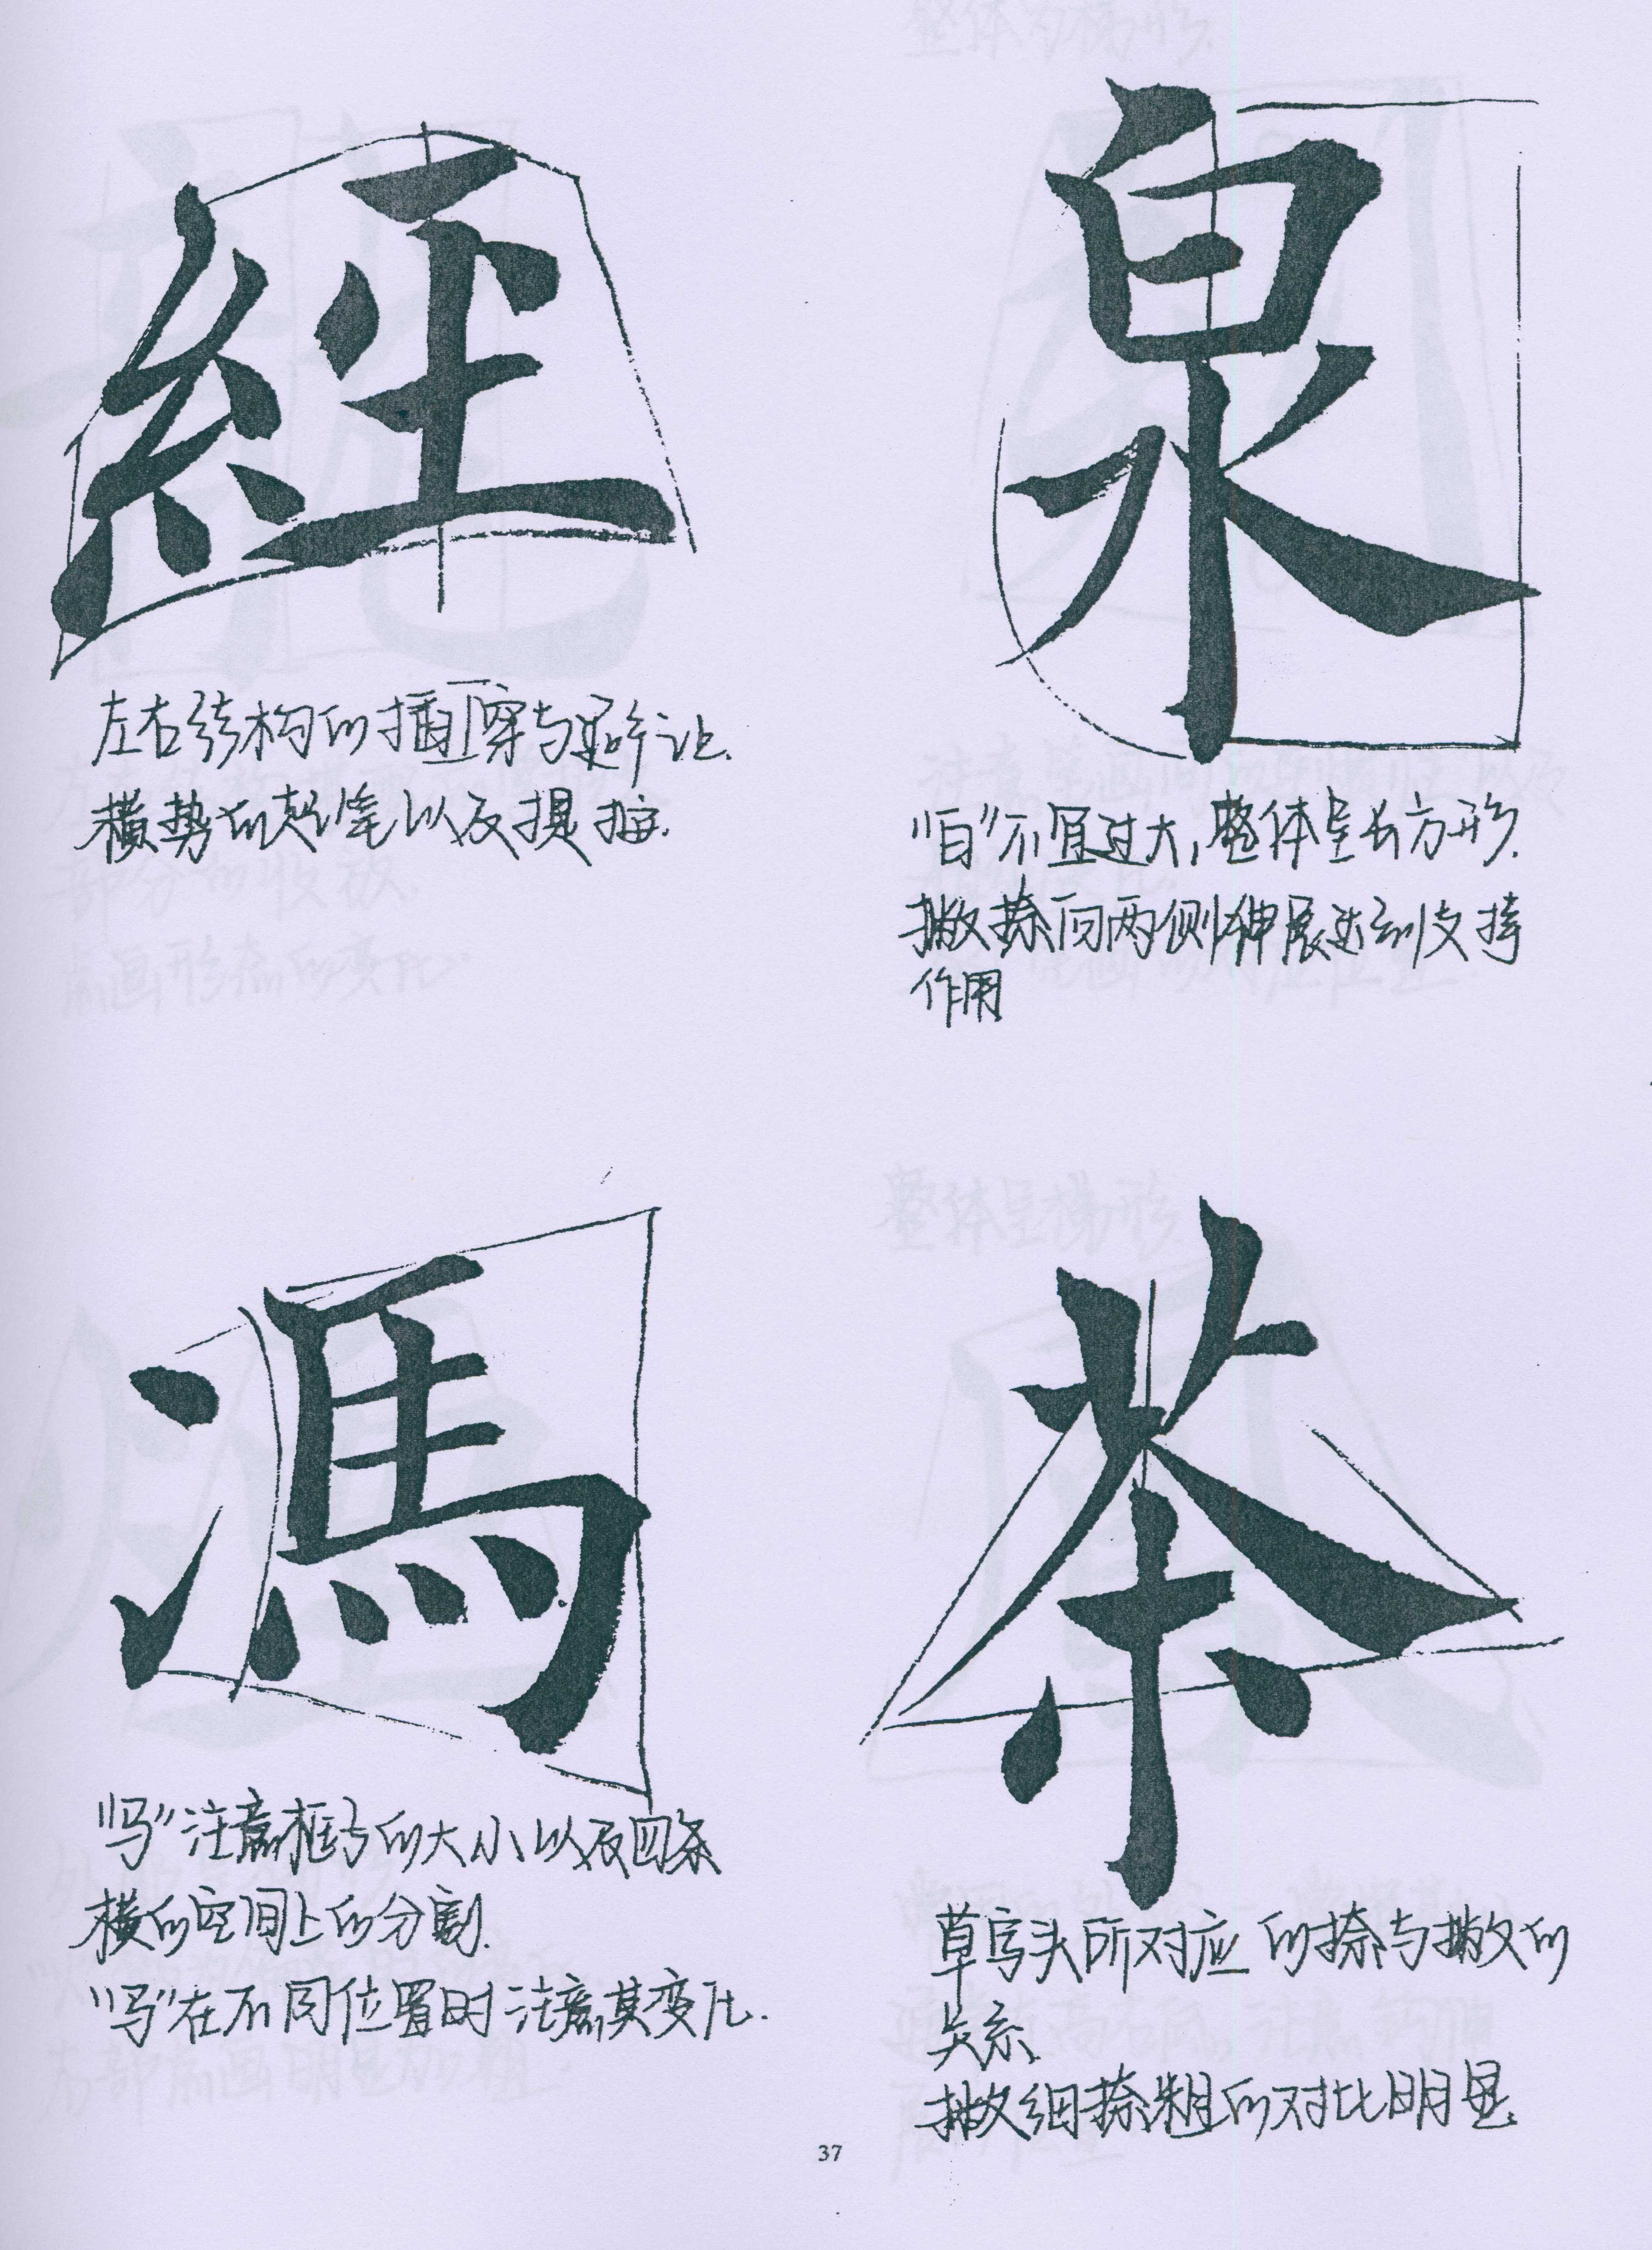 經
左右结构的插穿与避让.
横势的起笔以及提按.
泉
“白”不宜过大,整体呈长方形.
撇捺向两侧伸展达到支撑
作用
馮
“马”注意框子的大小以及四条
横的空间上的分割.
“马”在不同位置时注意其变化.
茶
草字头所对应的捺与撇的
关系.
撇细捺粗的对比明显.
37